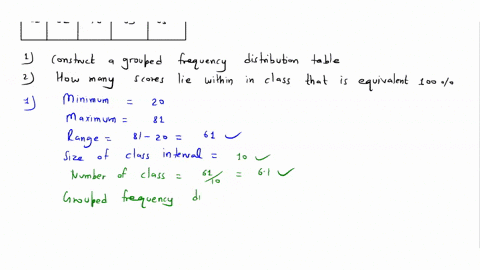 1) Construct a grouped frequency distribution table
2) How many scores lie within in class that is equivalent 100%
1) Minimum = 20
Maximum = 81
Range = 81-20 = 61 ✓
Size of class interval = 10 ✓
Number of class = 61/10 = 6.1 ✓
Grouped frequency di